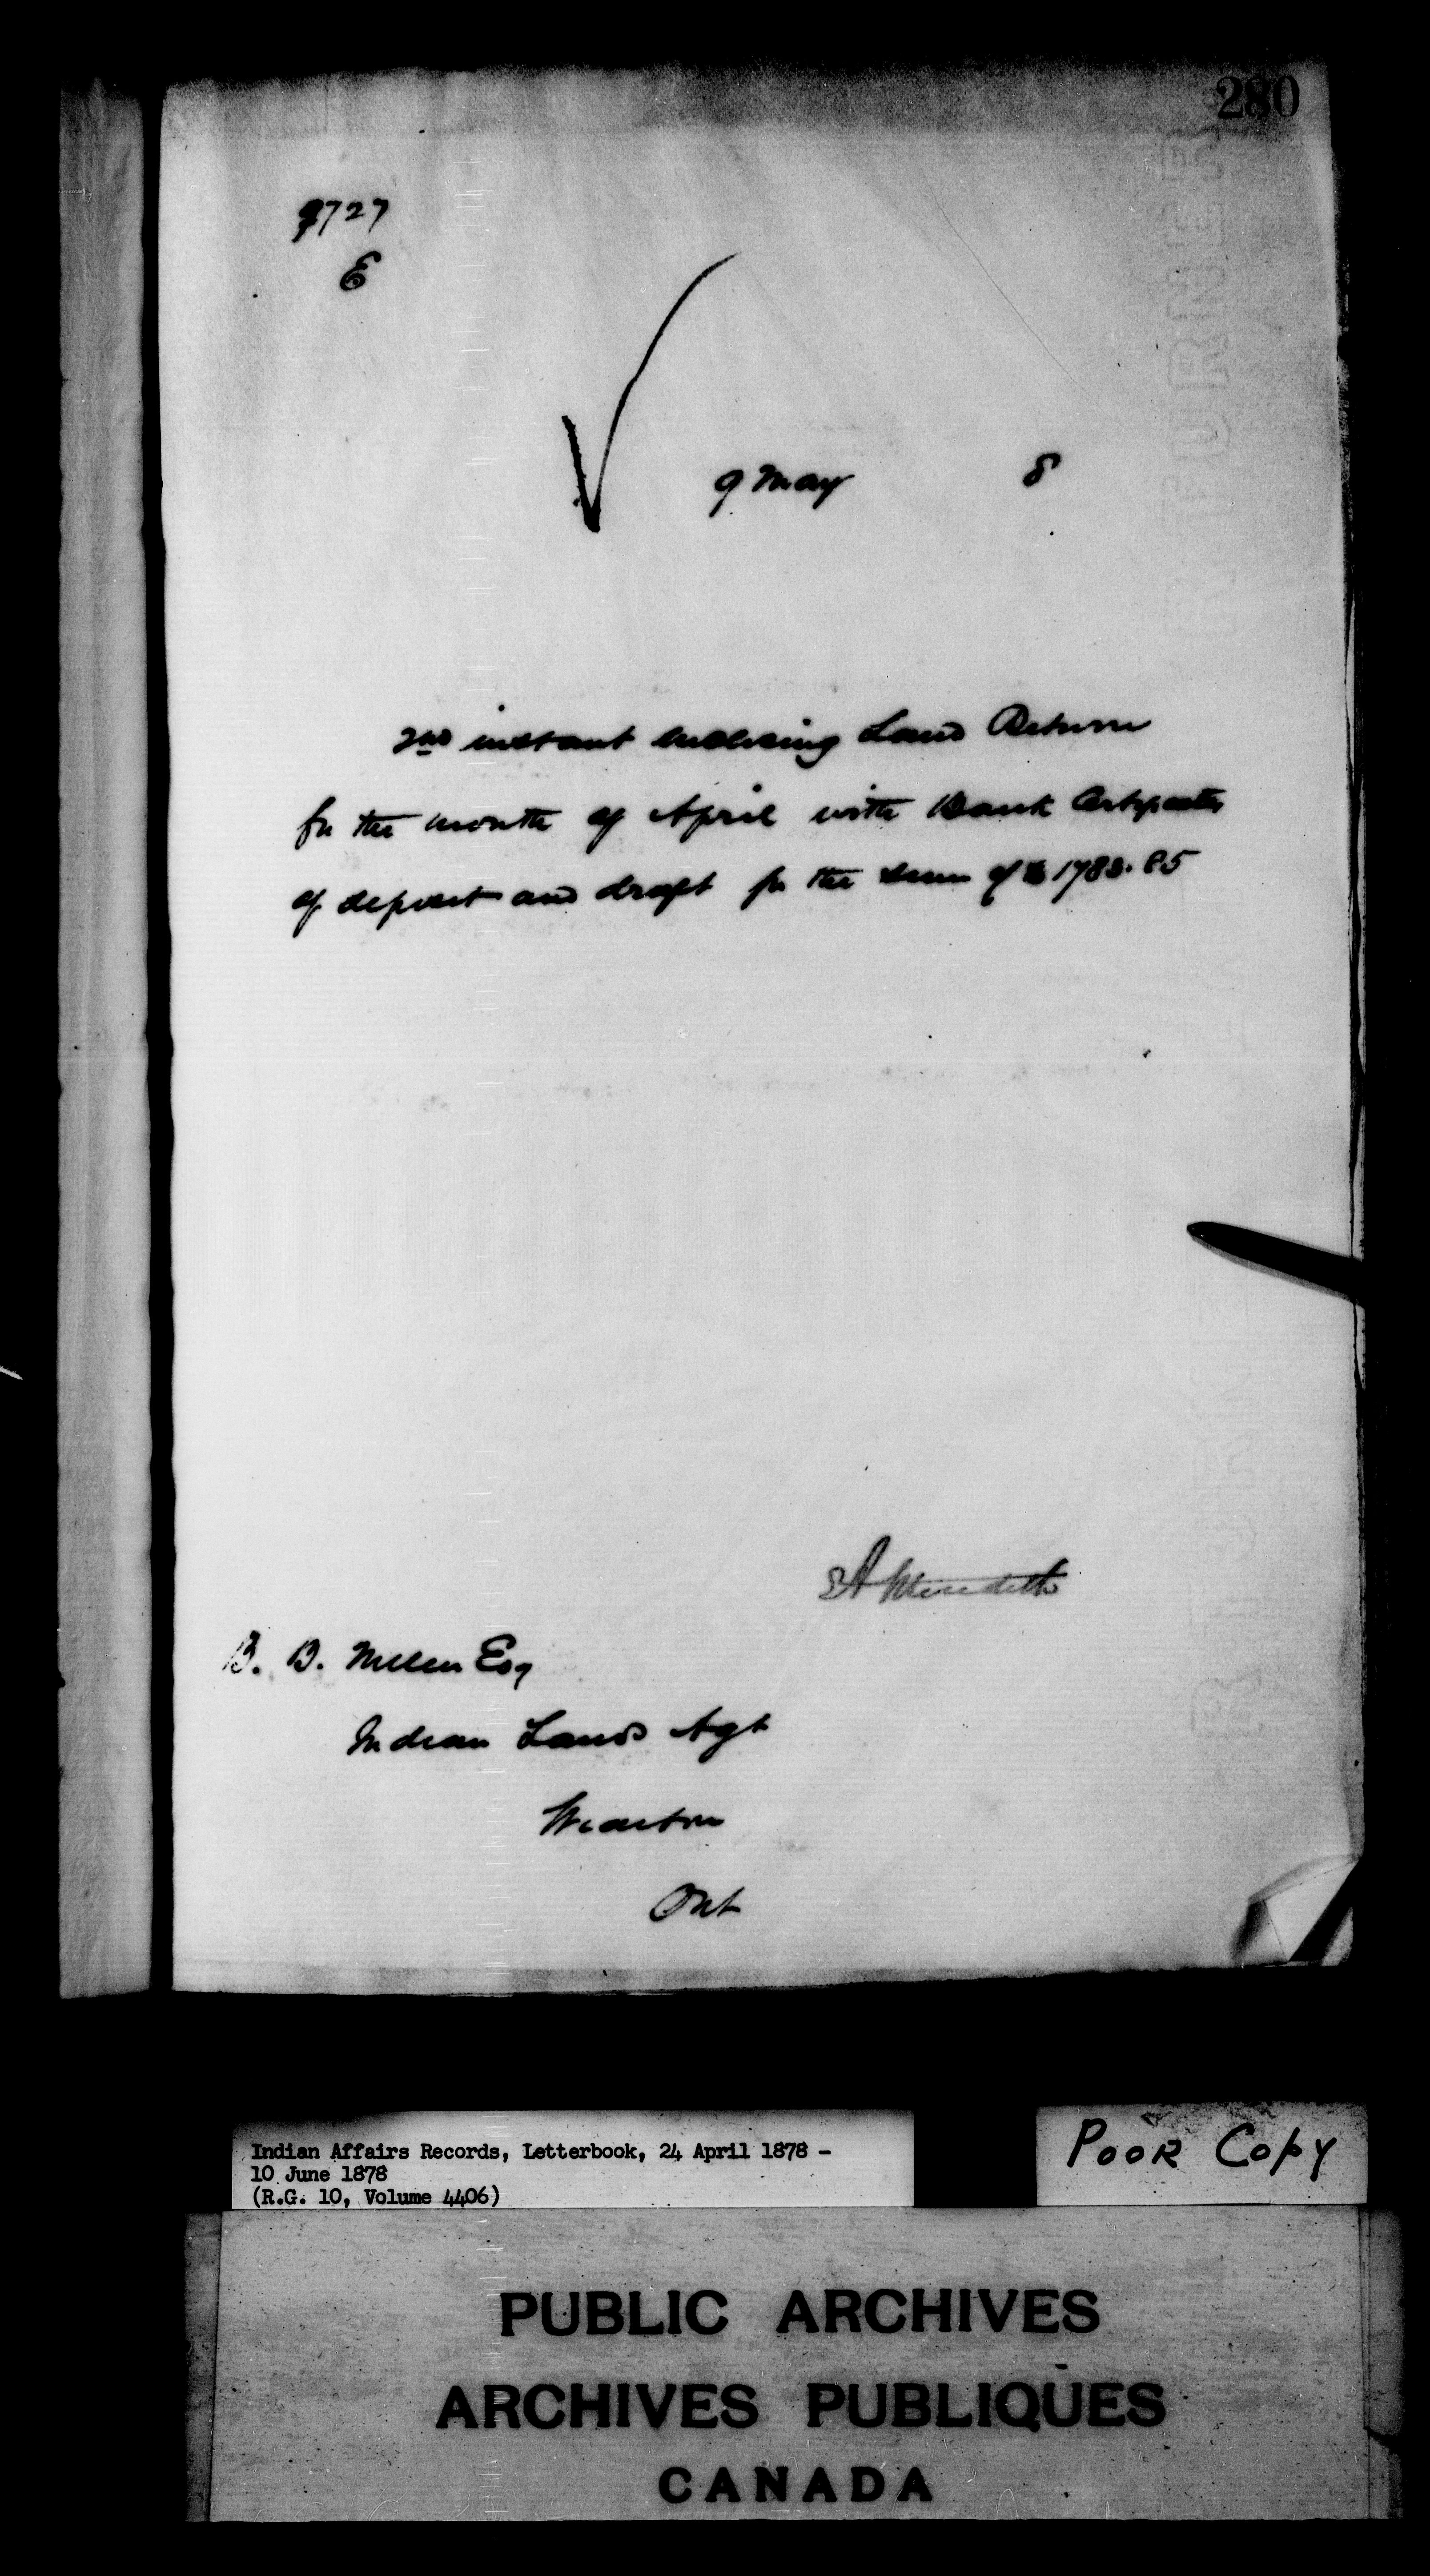 280
9727
E
9 May 8
2nd instant enclosing Land Return
for the month of April with Bank Certificates
of deposit and draft for the sum of $ 1783.85
E A Meredith
B. B. Miller Esq
Indian Lands Agt
Wiarton
Ont
Indian Affairs Records, Letterbook, 24 April 1878 -
10 June 1878
(R.G. 10, Volume 4406)
POOR COPY
PUBLIC ARCHIVES
ARCHIVES PUBLIQUES
CANADA